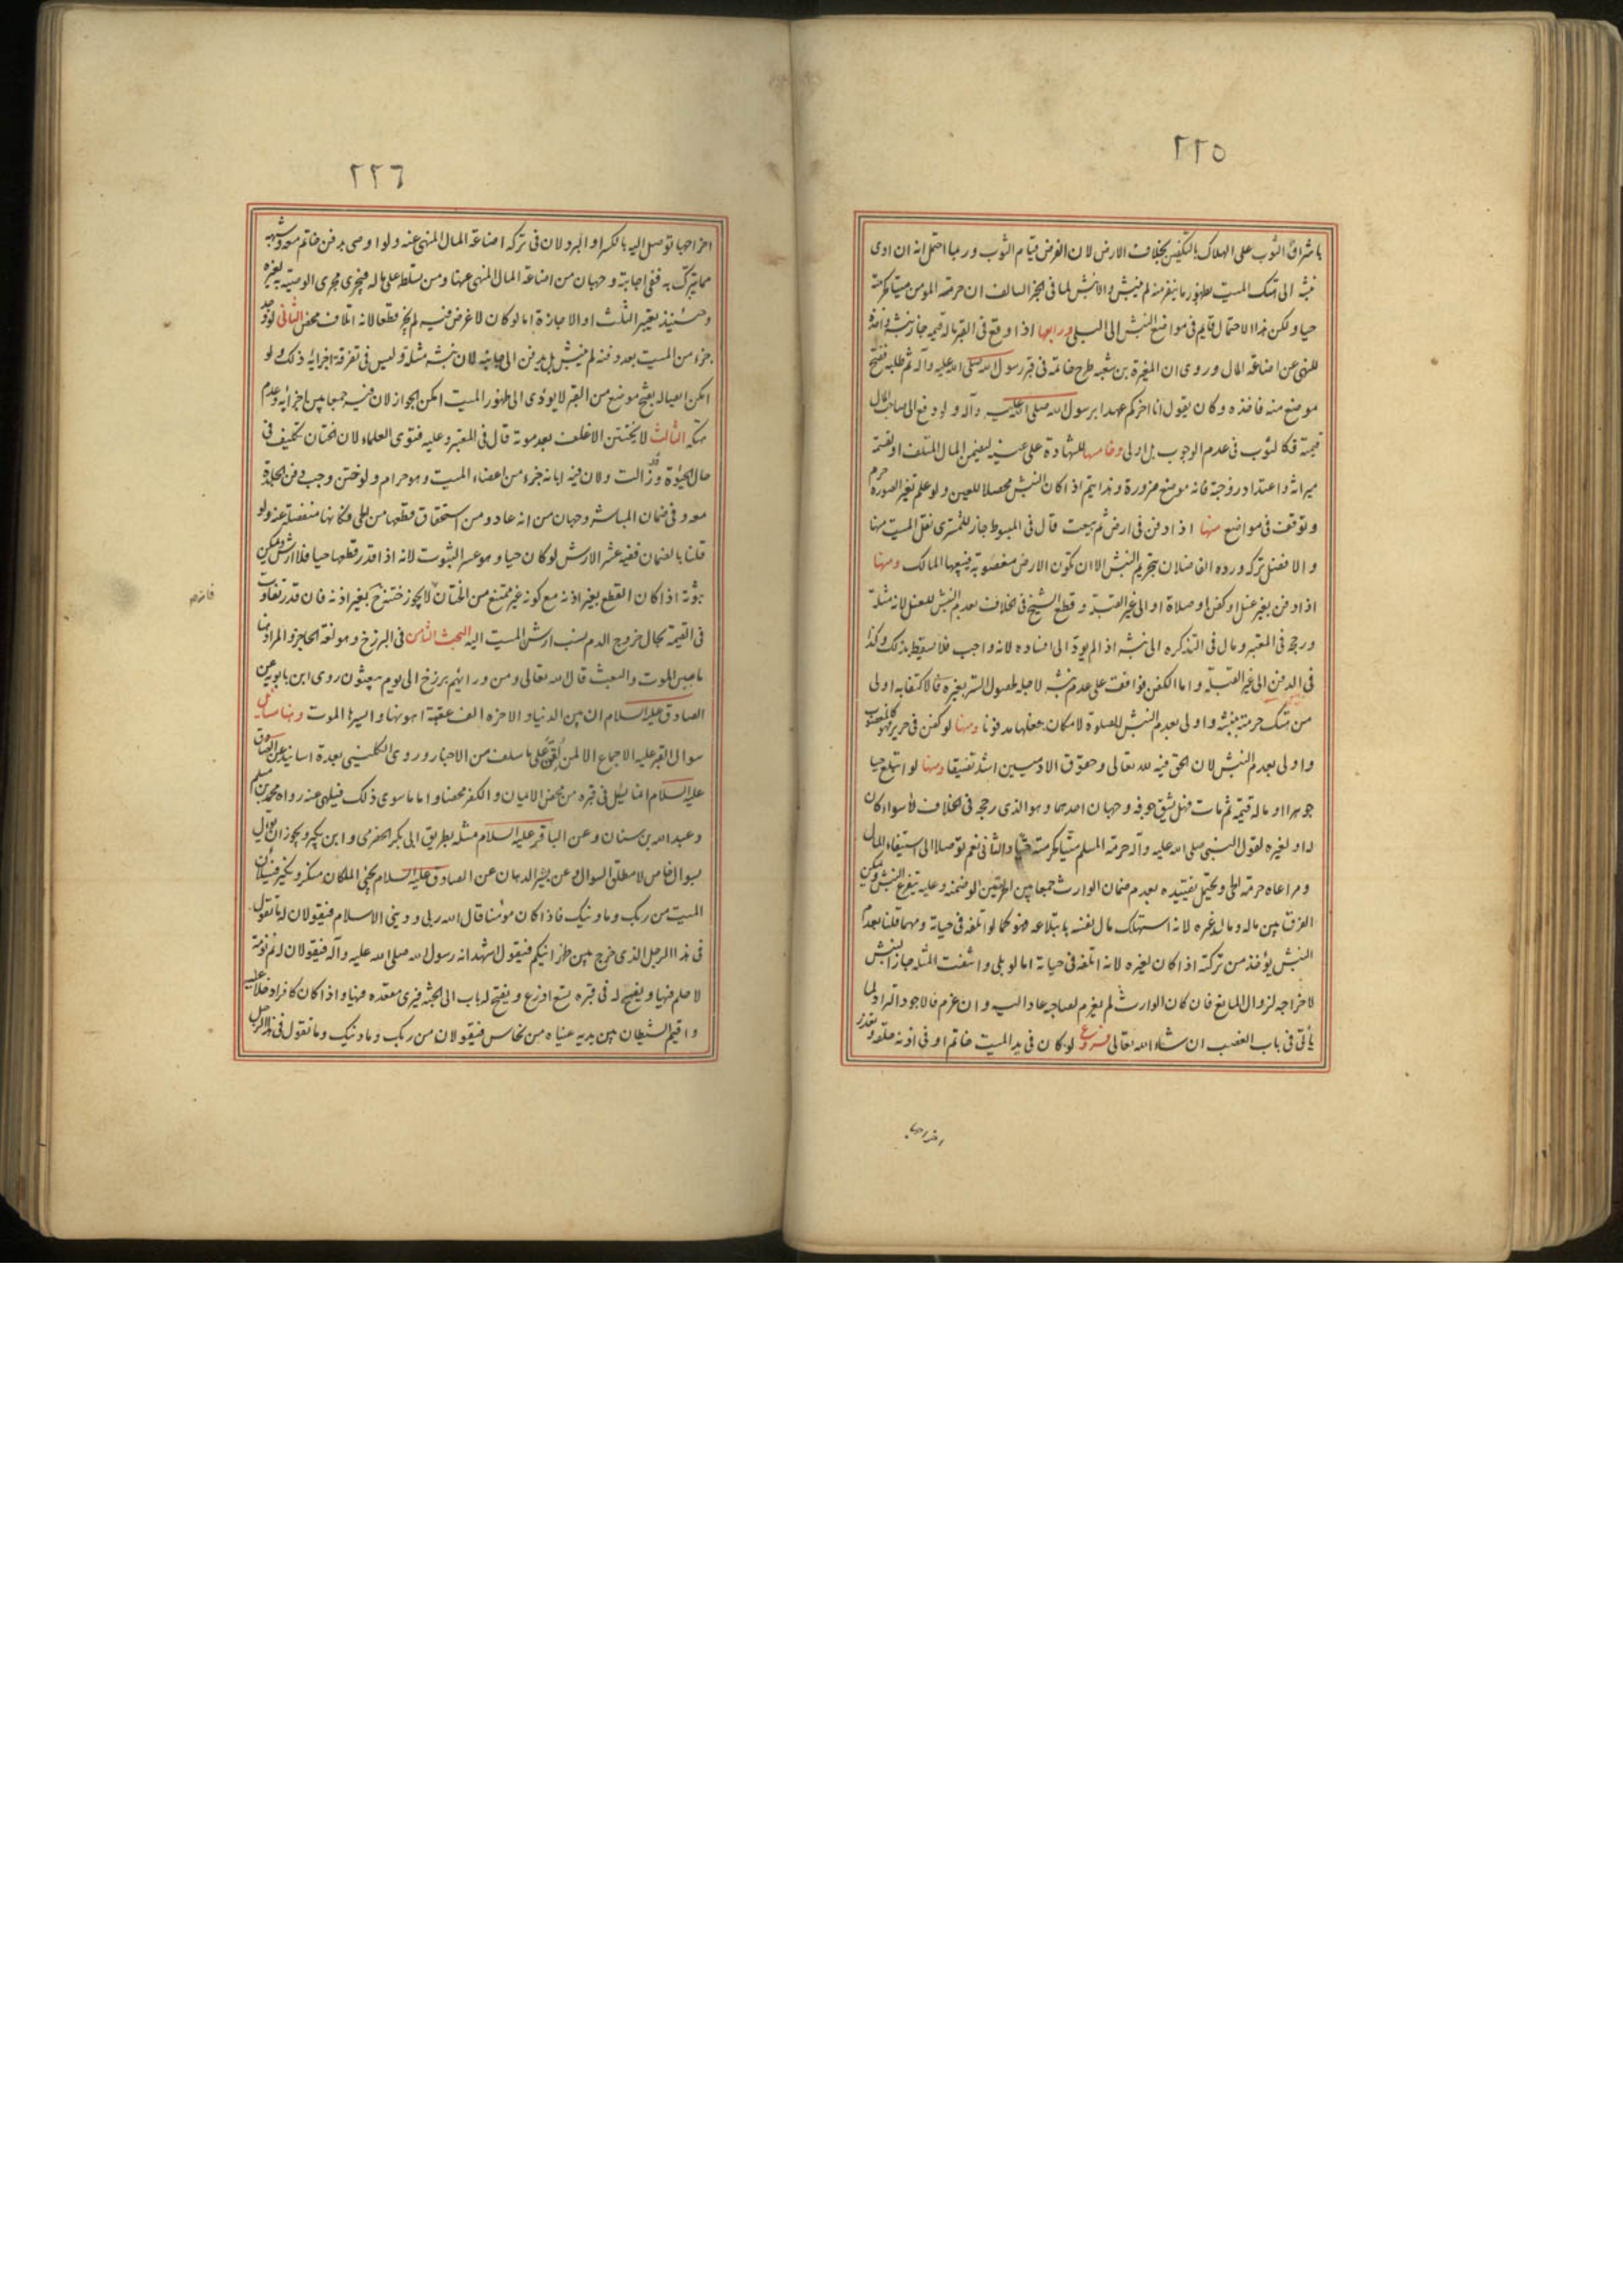 ٢٢٥
باشراف الثوب على الهلاك بالتكفين بخلاف الارض لان الغرض قيام الثوب وربما احتمل انه ان ادى
نبشه الى هتك الميت بظهور ما ينفر منه لم ينبش والا نبش لما فى الخبر السالف ان حرمة المومن ميتا كحرمته
حيا ولكن هذا الاحتمال قايم فى مواضع النبش الى البلى ورابعها اذا وقع فى القبر ماله قيمه جاز نبشه واخذه
للنهى عن اضاعة المال وروى ان المغيرة بن شعبه طرح خاتمه فى قبر رسول الله صلى الله عليه وآله ثم طلبه ففتح
موضع منه فاخذه وكان يقول انا اخركم عهدا برسول الله صلى الله عليه وآله ولو دفع الى صاحب المال
قيمته فكالثوب فى عدم الوجوب بل اولى وخامسها للشهادة على عينه ليضمن المال المتلف او لقسمة
ميراثه واعتداد زوجته فانه موضع ضرورة وهذا يتم اذا كان النبش محصلا للعين ولو علم تغير الصوره حرم
وتوقف فى مواضع منها اذا دفن فى ارض ثم بيعت قال فى المبسوط جاز للمشترى نقل الميت منها
والافضل تركه ورده الفاضلان بتحريم النبش الا ان تكون الارض مغصوبة فيبيعها المالك ومنها
اذا دفن بغير غسل او كفن او صلاة او الى غير القبلة وقطع الشيخ فى الخلاف بعدم النبش للغسل لانه مثلة
ورجح فى المعتبر ومال فى التذكره الى نبشه اذا لم يؤد الى افساده لانه واجب فلا يسقط بذلك وكذا
فى الدفن الى غير القبلة واما الكفن فوافقت على عدم نبشه لاجله لحصول الستر بغيره فالاكتفا به اولى
من هتك حرمته بنبشه واولى بعدم النبش للصلوة لامكان جعلها مدفونا ومنها لو كفن فى حرير فهو كالمغصوب
واولى بعدم النبش لان الحق فيه لله تعالى وحقوق الادميين اشد تضيقا ومنها لو ابتلع حيا
جوهرا او ماله قيمة ثم مات فهل يشق جوفه وجهان احدهما وهو الذى رجحه فى الخلاف لا سواء كان
له او لغيره لقول النبى صلى الله عليه وآله حرمة المسلم ميتا كحرمته حيا والثانى نعم توصلا الى استيفاء المال
ومراعاة حرمة الحى ويحتمل تقييده بعدم ضمان الوارث جمعا بين الحرمتين لو ضمنه وعليه يتفرع النبش ويمكن
الفرق بين ماله ومال غيره لانه استهلك مال نفسه بابتلاعه فهو كما لو اتلفه فى حياته ومهما قلنا بعدم
النبش يؤخذ من تركته اذا كان لغيره لانه اتلفه فى حياته اما لو بلى وانتفت المثلة جاز النبش
لاخراجه لزوال المانع فان كان الوارث لم يغرم لصاحبه عاد اليه وان غرم فالاجود التراد لما
يأتى فى باب الغصب ان شاء الله تعالى فروع لو كان فى يد الميت خاتم او فى اذنه حلقه وتعذر
اخراجها
٢٢٦
اخراجها توصل اليه بالكسر او البرد لان فى تركه اضاعة المال المنهى عنه ولو اوصى بدفن خاتم معه وشبهه
مما يتبرك به ففى اجابته وجهان من اضاعة المال المنهى عنها ومن تسلطه على ماله فيجرى مجرى الوصية به لغيره
وحينئذ يعتبر الثلث او الاجازة اما لو كان لا غرض فيه لم يجز قطعا لانه اتلاف محض الثانى لو وجد
جزء من الميت بعد دفنه لم ينبش بل يدفن الى جانبه لان نبشه مثلة وليس فى تفرقة اجزائه ذلك ولو
امكن ايصاله بفتح موضع من القبر لا يؤدى الى ظهور الميت امكن الجواز لان فيه جمعا بين اجزائه وعدم
هتكه الثالث لا يختن الاغلف بعد موته قال فى المعتبر وعليه فتوى العلماء لان الختان تكليف فى
حال الحيوة وقد زالت ولان فيه ابانه جزء من اعضاء الميت وهو حرام ولو ختن وجب دفن الجلدة
معه وفى ضمان المباشر وجهان من انه عاد ومن استحقاق قطعها من الحى فكانها منفصلة عنه ولو
قلنا بالضمان ففيه عشر الارش لو كان حيا وهو عسر الثبوت لانه اذا قدر قطعها حيا فلا ارش ويمكن
ثبوته اذا كان القطع بغير اذنه مع كونه غير ممتنع من الختان لا يجوز ختنه بغير اذنه فان قدر تفاوت
فى القيمة بحال خروج الدم نسب ارش الميت اليه البحث الثامن فى البرزخ وهو لغة الحاجز والمراد هنا
ما بين الموت والبعث قال الله تعالى ومن ورائهم برزخ الى يوم يبعثون روى ابن بابويه عن
الصادق عليه السلام ان بين الدنيا والاخره الف عقبة اهونها وايسرها الموت وهنا مسائل
سوال القبر عليه الاجماع الا لمن لقن على ما سلف من الاخبار وروى الكلينى بعدة اسانيد عن الصادق
عليه السلام انما يسئل فى قبره من محض الايمان والكفر محضا واما ما سوى ذلك فيلهى عنه رواه محمد بن مسلم
وعبد الله بن سنان وعن الباقر عليه السلام مثله بطريق ابى بكر الحضرمى وابن بكير ويجوز ان يؤول
بسوال خاص لا مطلق السوال وعن بشير الدهان عن الصادق عليه السلام يجئ الملكان منكر ونكير فيسألان
الميت من ربك وما دينك فاذا كان مؤمنا قال الله ربى ودينى الاسلام فيقولان له ما تقول
فى هذا الرجل الذى خرج بين ظهرانيكم فيقول اشهد انه رسول الله صلى الله عليه وآله فيقولان له نم نومة
لا حلم فيها ويفسح له فى قبره تسع اذرع ويفتح له باب الى الجنة فيرى مقعده فيها واذا كان كافرا دخلا عليه
واقيم الشيطان بين يديه عيناه من نحاس فيقولان من ربك وما دينك وما تقول فى هذا الرجل